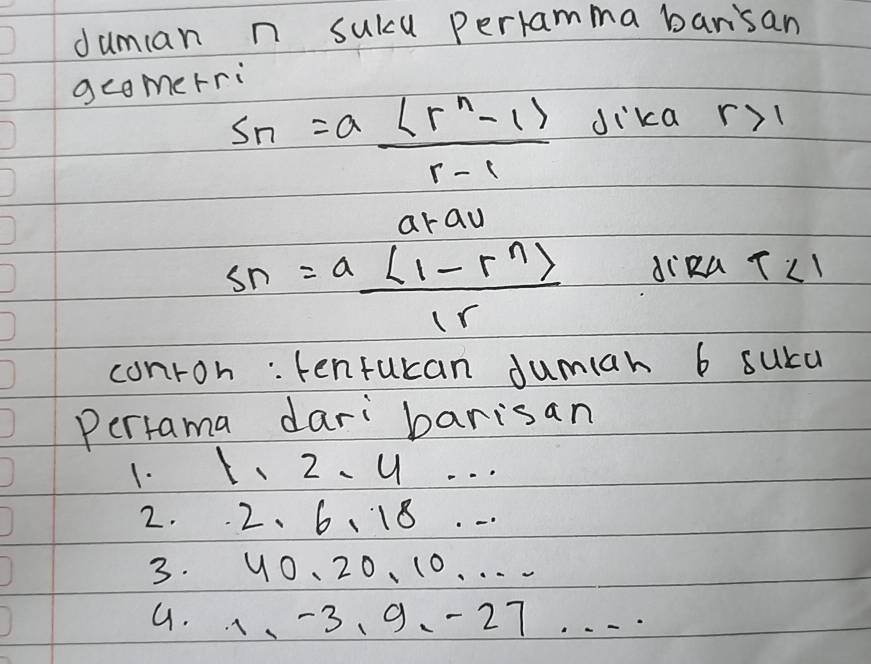 Jumlah n suku Pertamma barisan
geometri
Sn = a (r^n - 1) Jika r>1
r - 1
atau
Sn = a (1 - r^n) Jika r<1
1 r
contoh : tentukan Jumlah 6 suku
Pertama dari barisan
1. 1, 2, 4 ...
2. 2, 6, 18 ...
3. 40, 20, 10, ....
4. 1, -3, 9, -27 ....